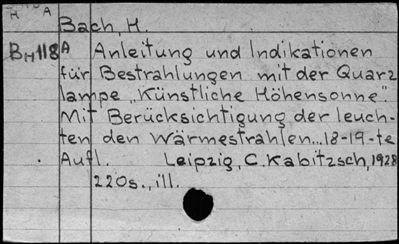 H A
Bach, H.
BH118 A Anleitung und Indikationen
für Bestrahlungen mit der Quarz
lampe "Künstliche Höhensonne".
Mit Berücksichtigung der leuch-
ten den Wärmestrahlen...18-19-te
Aufl. Leipzig, C. Kabitzsch, 1928
220s., ill.